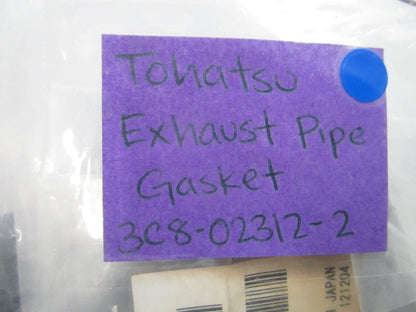 Tohatsu
Exhaust Pipe
Gasket
3C8-02312-2
JAPAN
121204